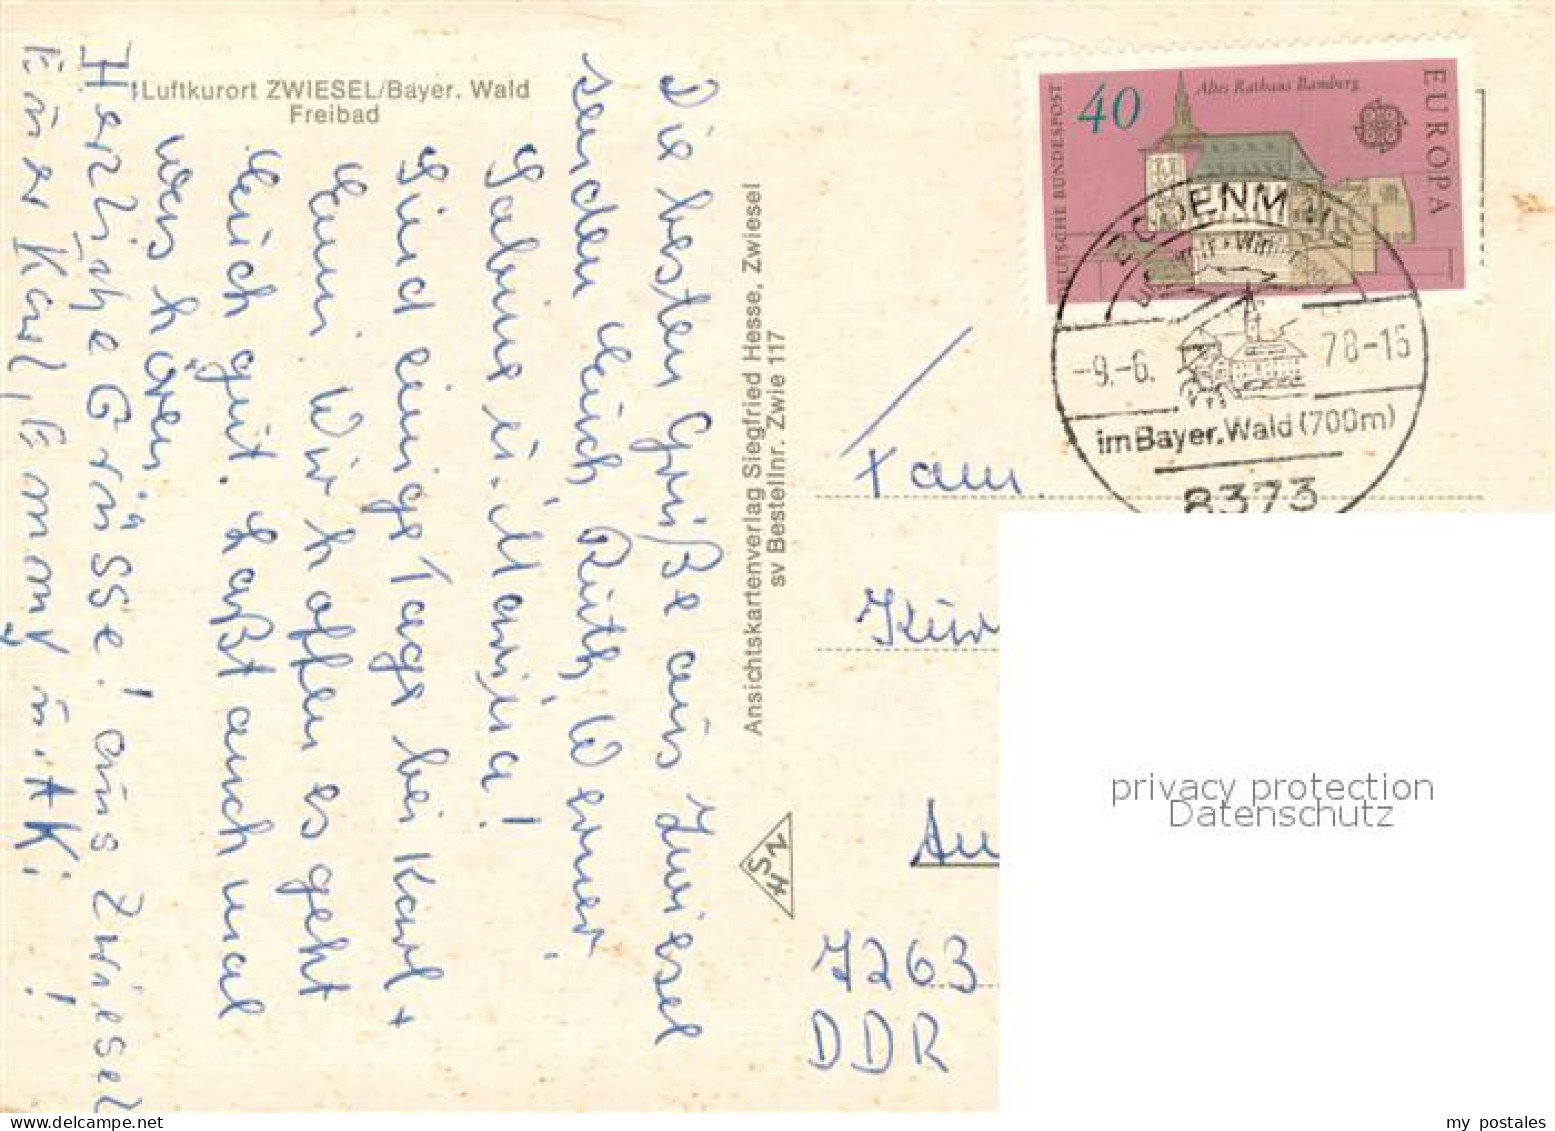 Luftkurort ZWIESEL/Bayer. Wald
Freibad
Die besten Grüße aus Zwiesel
senden Euch Ruth, Werner,
Sabine u. Marina!
Sind einige Tage bei Karl +
Hanni. Wir hoffen es geht
Euch gut. Laßt auch mal
was hören.
Herzliche Grüsse! aus Zwiesel
Euer Karl,
Ansichtskartenverlag Siegfried Hesse, Zwiesel
sv Bestellnr. Zwie 117
HSZ
40
Altes Rathaus Bamberg
EUROPA
DEUTSCHE BUNDESPOST
BODENMAIS
-9.-6.
78-15
im Bayer. Wald (700m)
8373
Fam.
Au
7263
DDR
privacy protection
Datenschutz
my postales